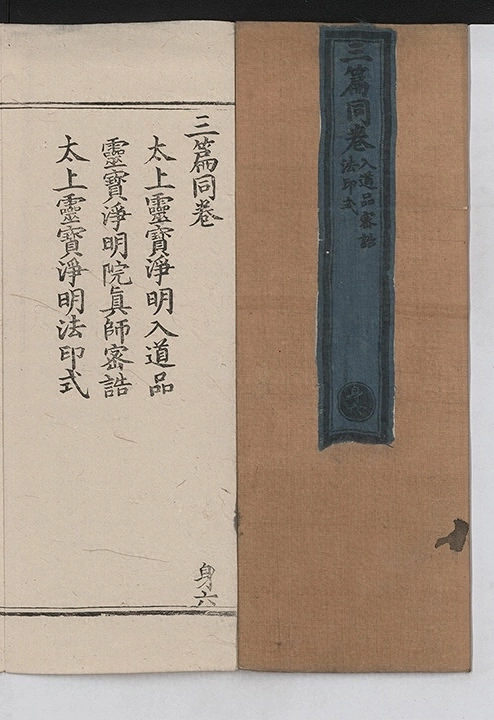 三篇同卷
入道品密誥
法印式
三篇同卷
太上靈寶淨明入道品
靈寶淨明院眞師密誥
太上靈寶淨明法印式
身六